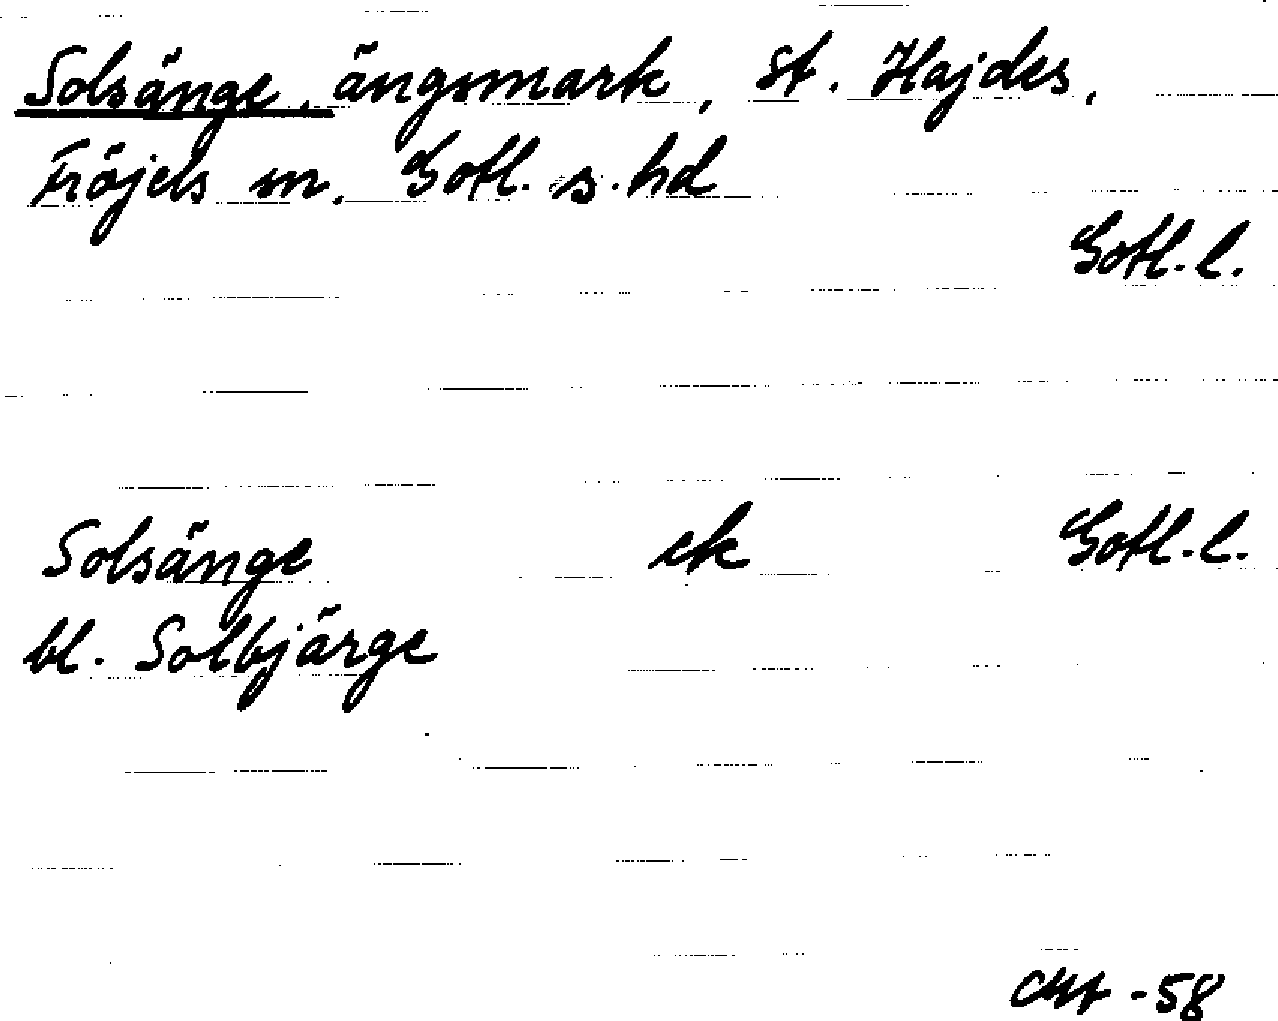 Solsänge, ängsmark, St. Hajdes,
Fröjels sn, Gotl. s. hd
Gotl. l.
Solsänge ek Gotl. l.
bl. Solbjärge
-58